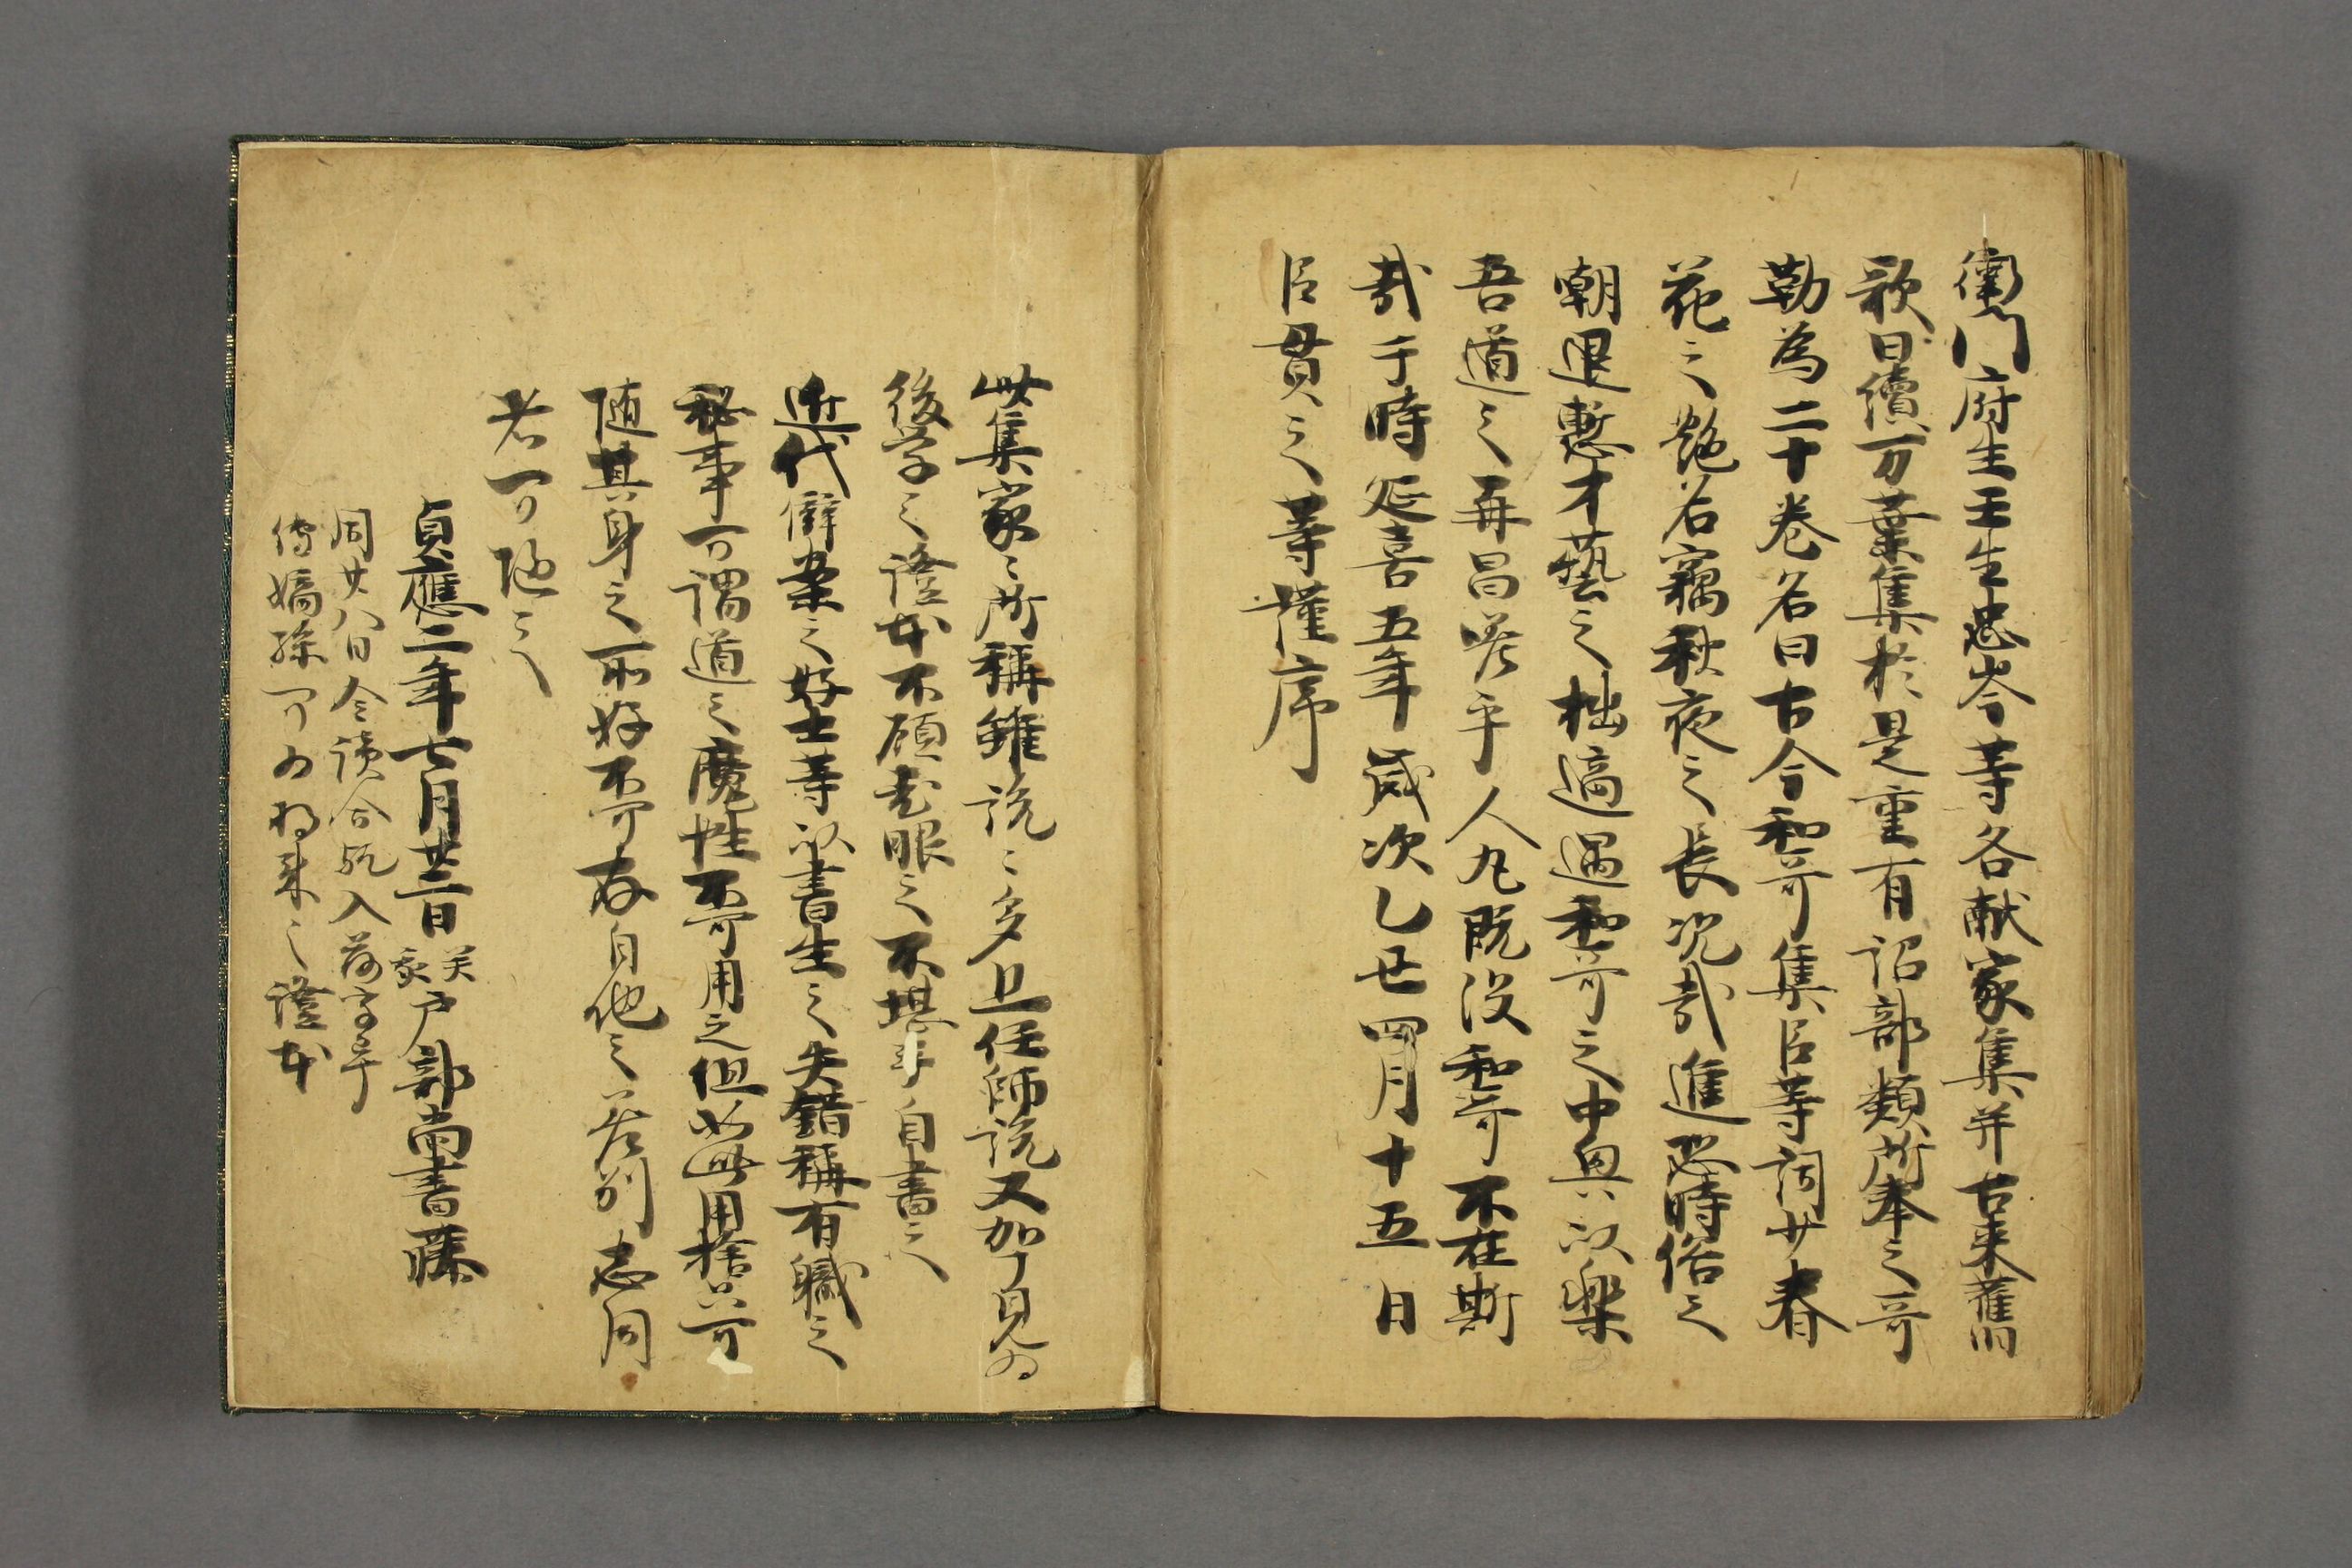 衛門府生壬生忠岑等各献家集并古来舊
歌曰續万葉集於是重有詔部類所奉之哥
勒為二十巻名曰古今和哥集臣等詞少春
花之艶名竊秋夜之長况哉進恐時俗之
嘲退慙才藝之拙適遇和哥之中興以樂
吾道之再昌嗟乎人丸既没和哥不在斯
哉于時延喜五年歳次乙丑四月十五日
臣貫之等謹序
此集家々所稱雖説々多且任師説又加了見為
後学之證本不顧老眼之不堪手自書之
近代僻案之好士等以書生之失錯稱有軄之
秘事可謂道之魔性不可用之但如此用捨只可
随其身之所好不可存自他之差別志同
者可随之
貞應二年七月廿二日癸亥戸部尚書藤
同廿八日令讀合訖入落字等
傳嫡孫可為将来之證本